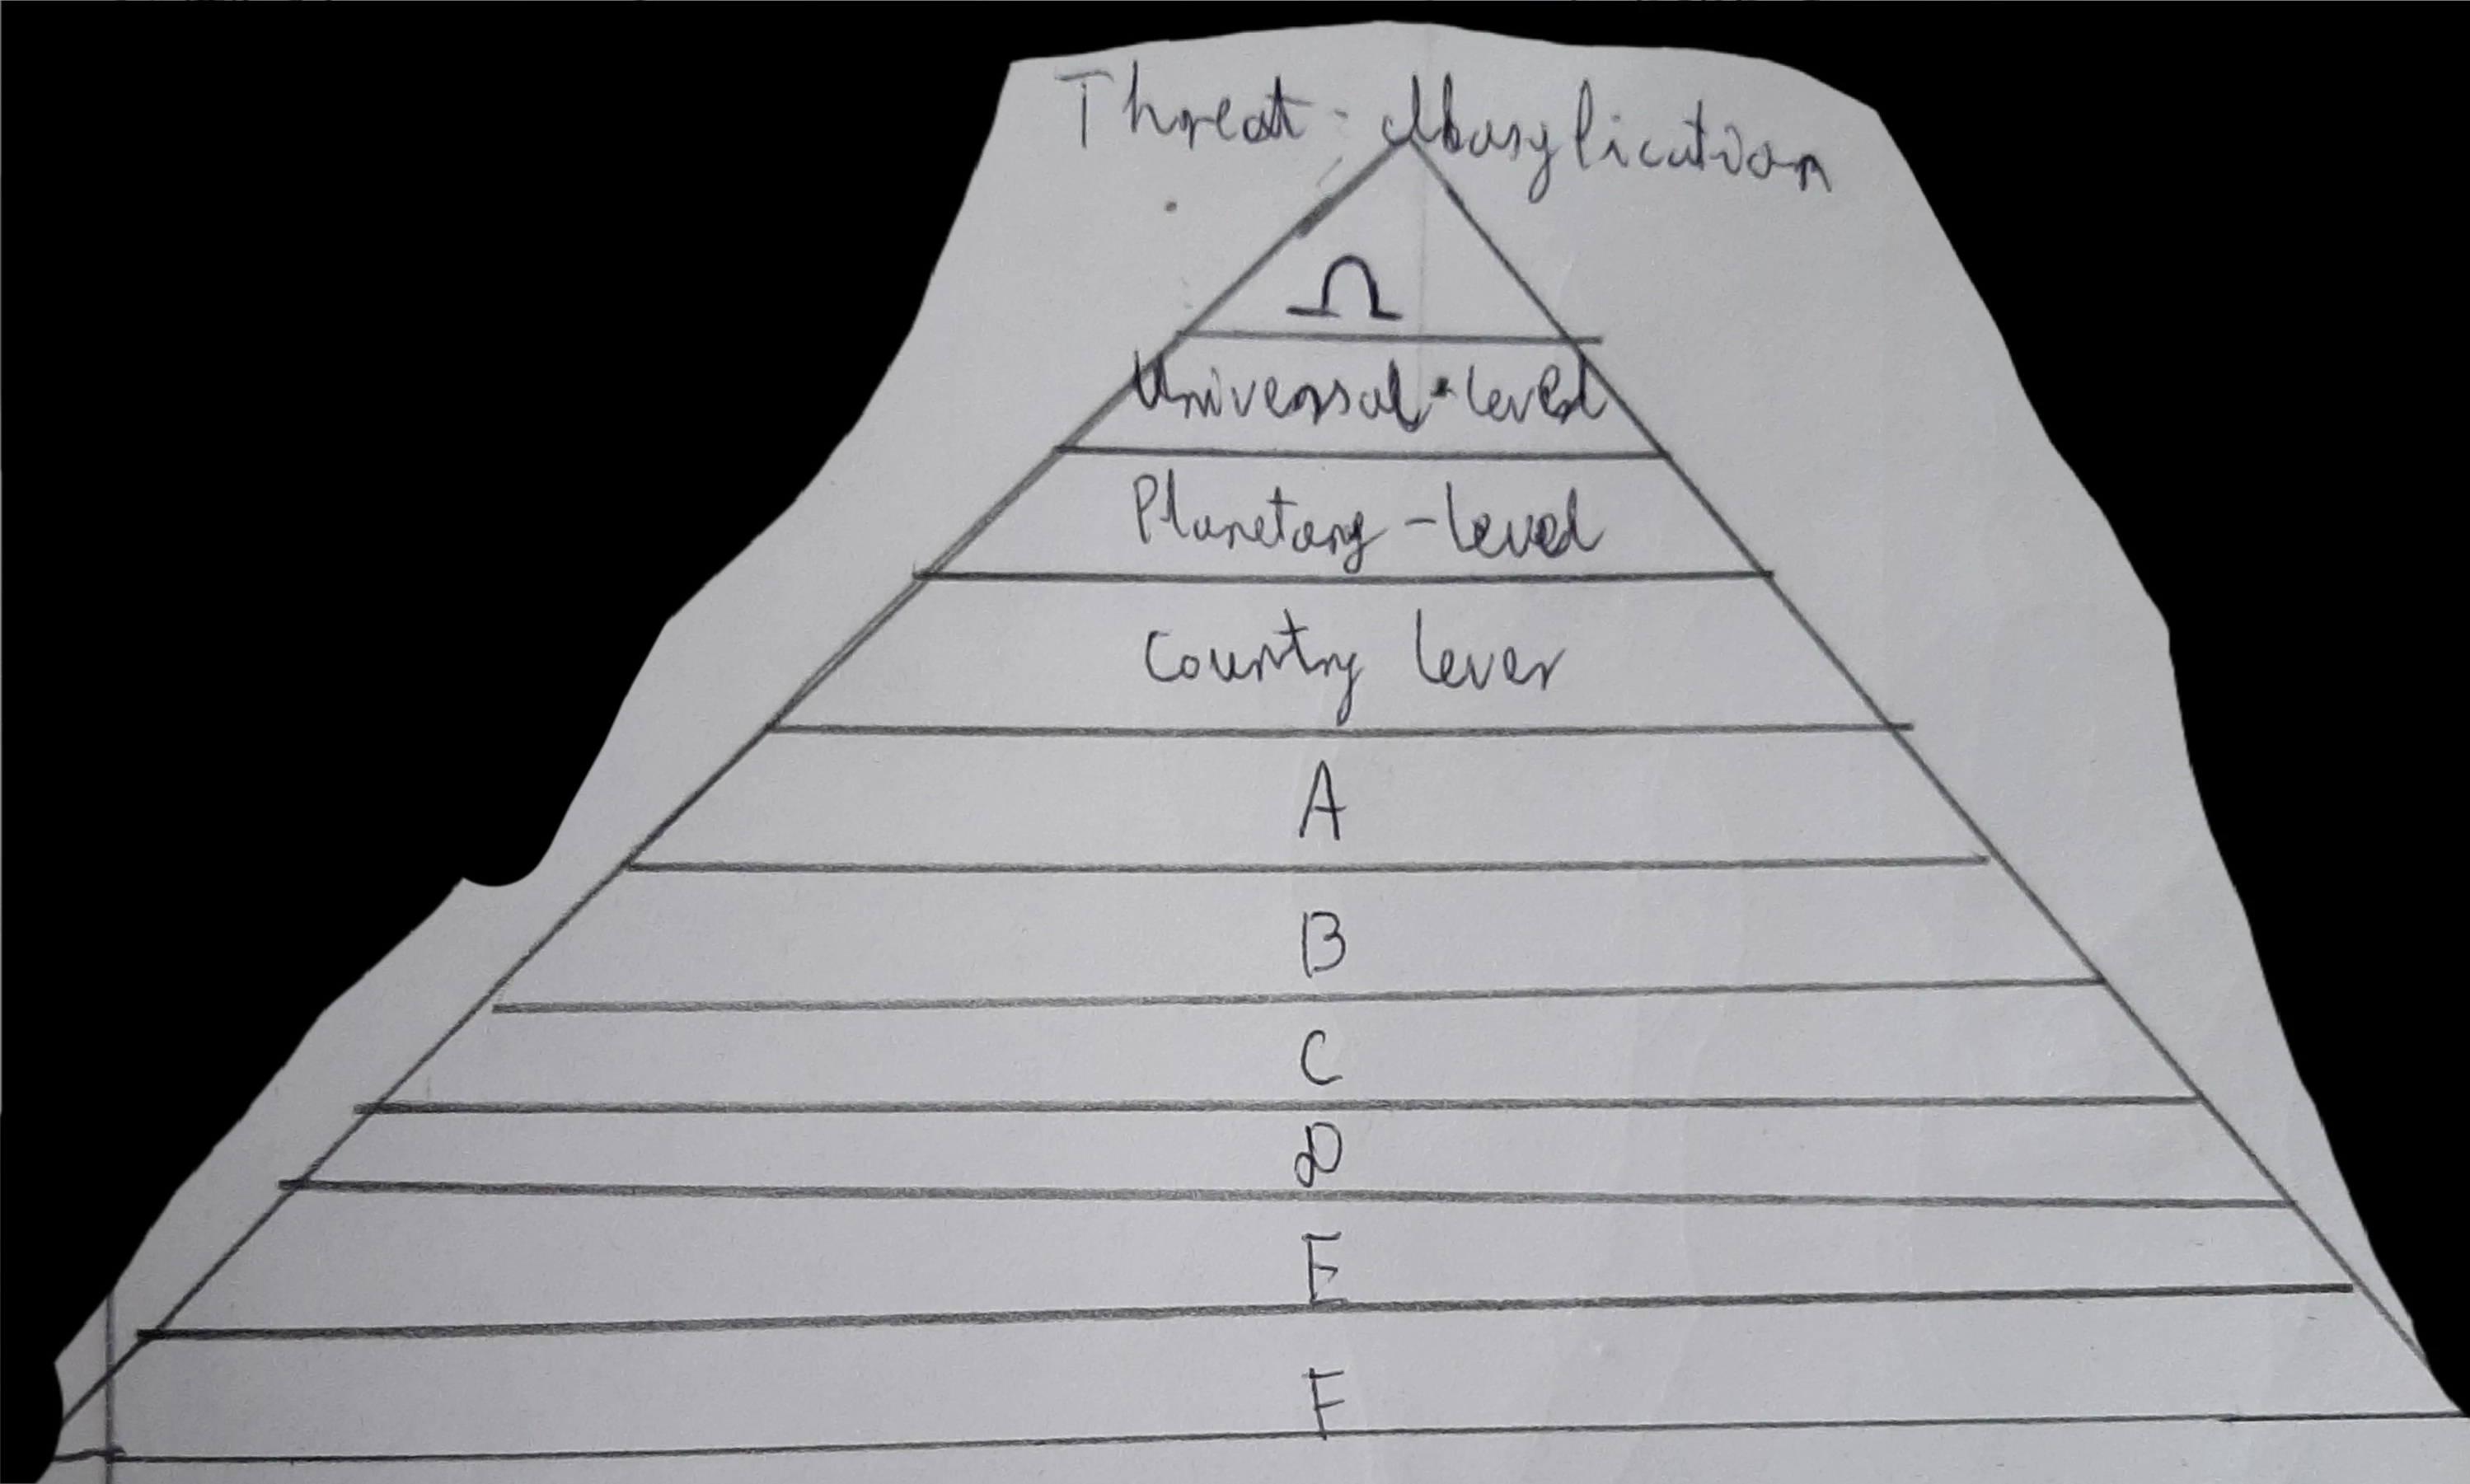 Threat -
Ω
Universal-level
Planetary-level
Country lever
A
B
C
D
E
F